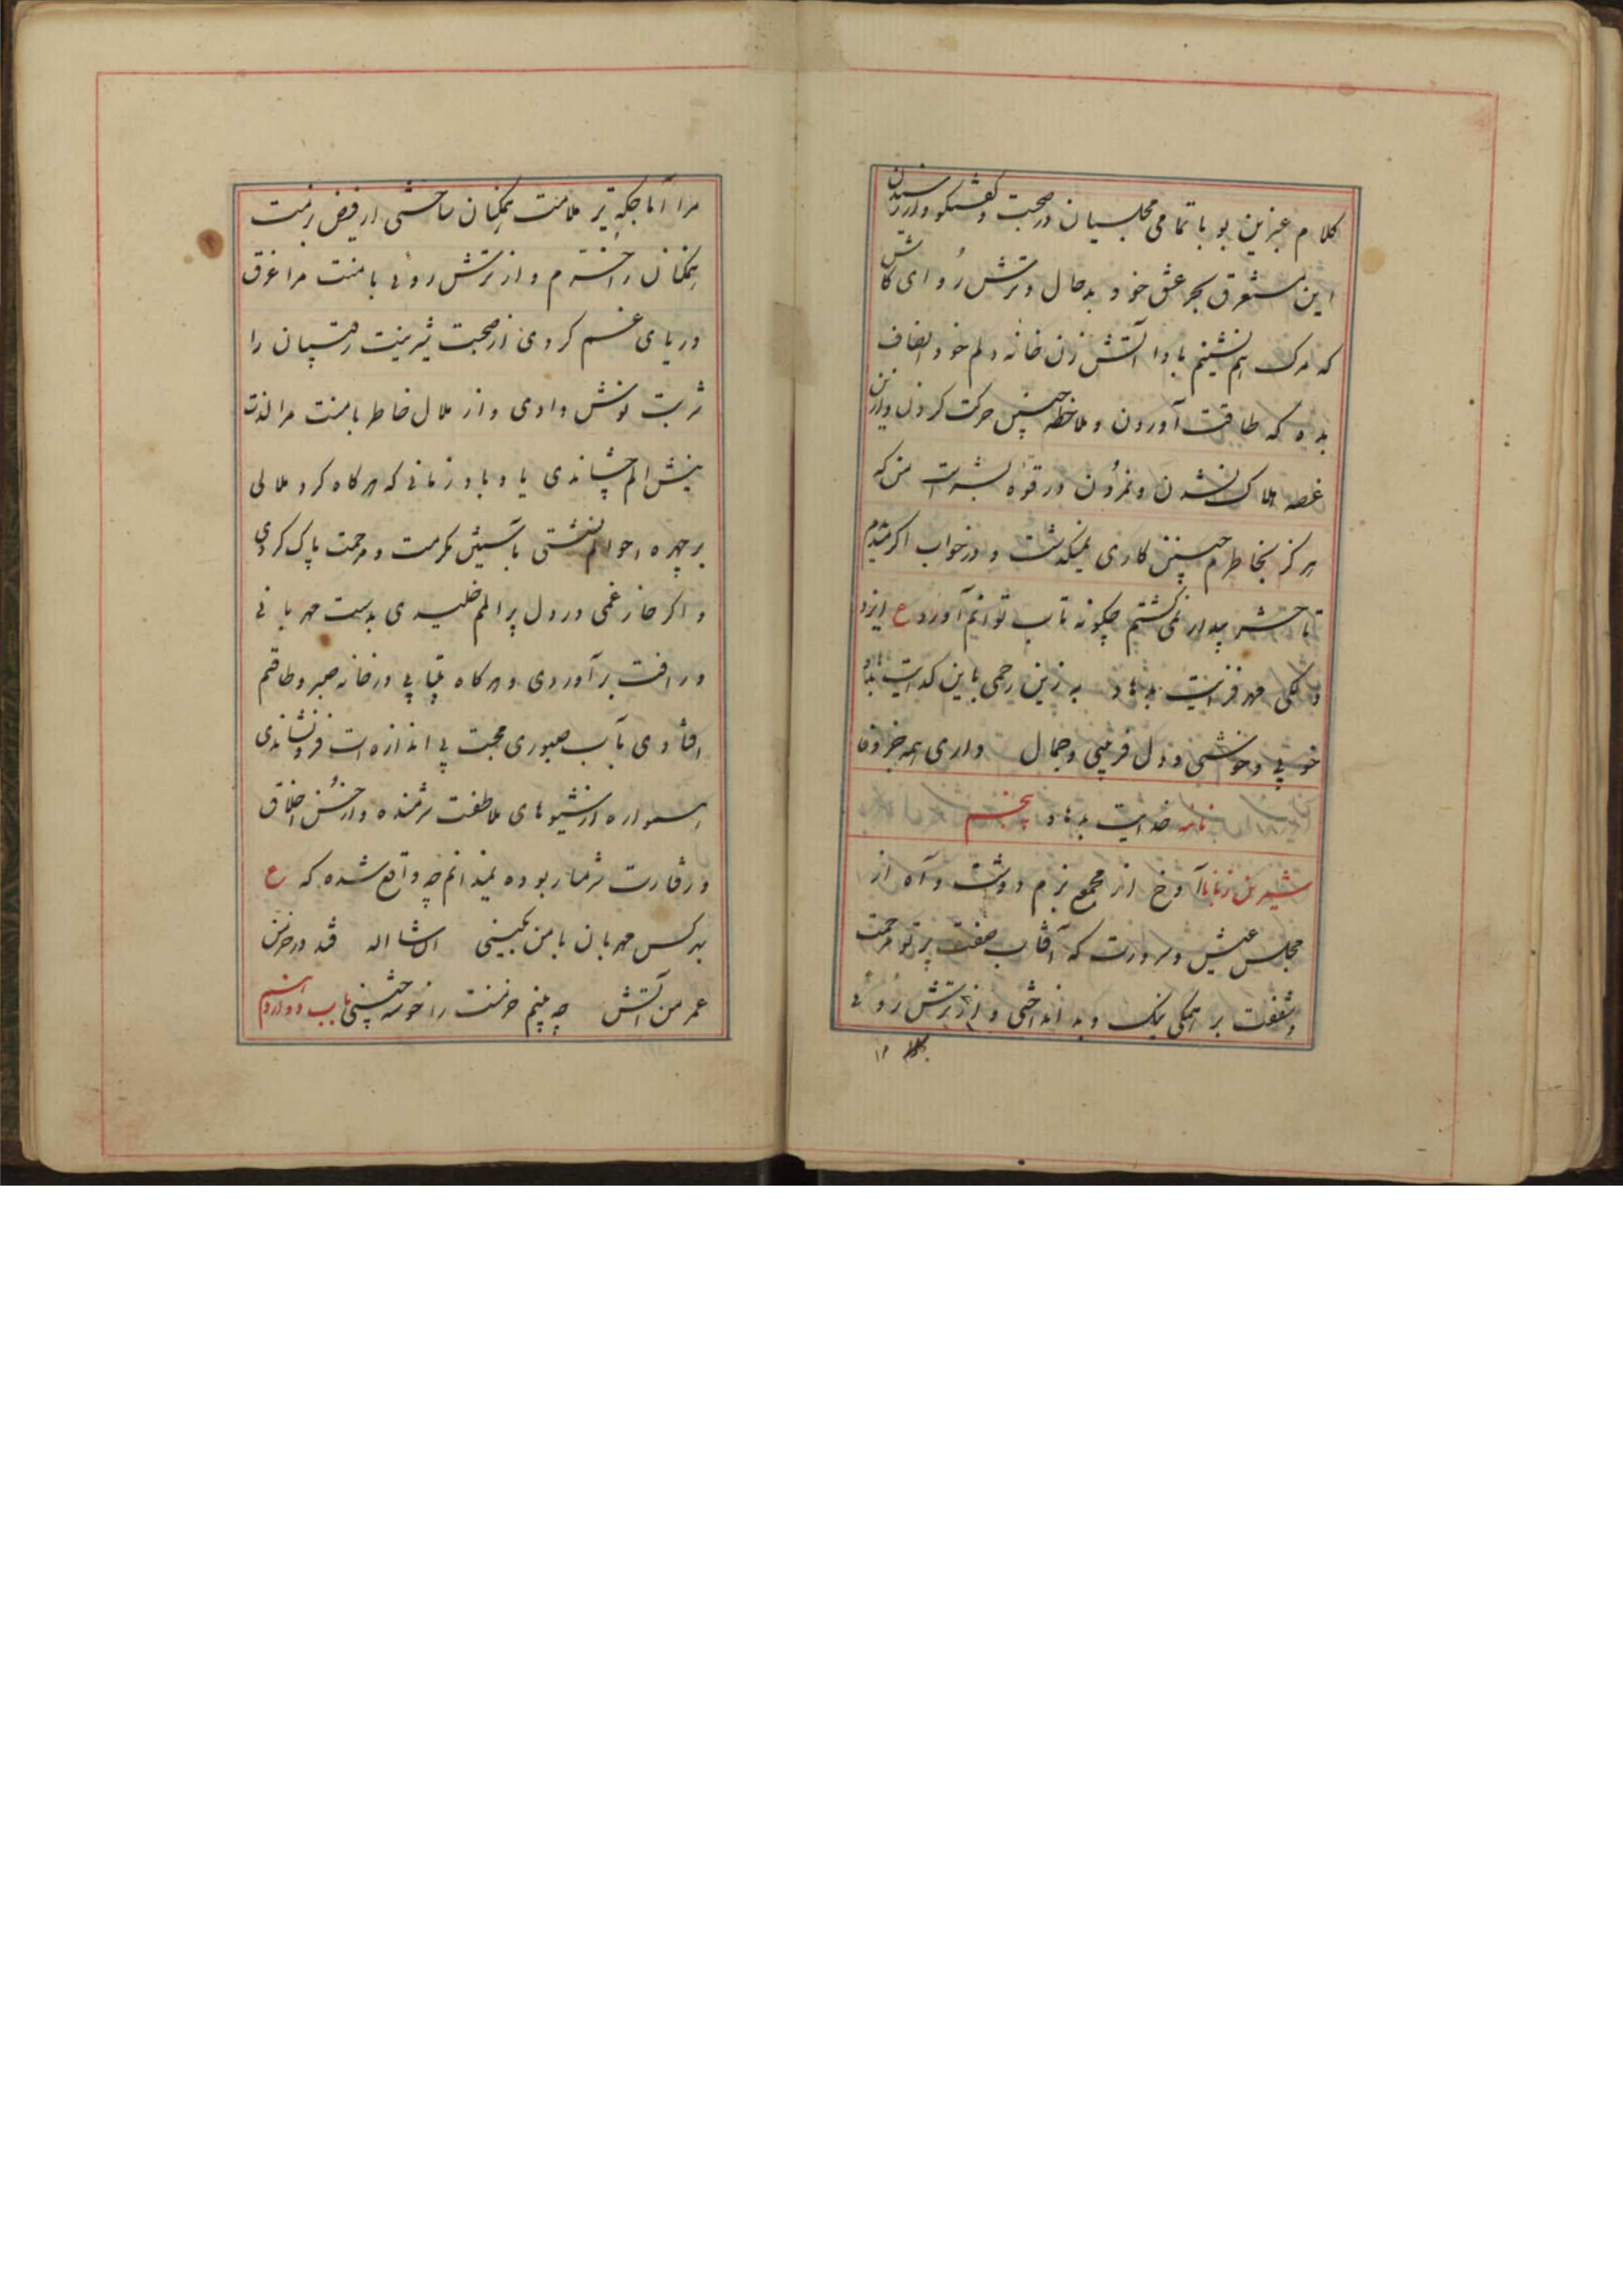 کلام عنبرین بو با تمامی مجلسیان در صحبت و کفتکو و از رسیدن
این مستغرق بحر عشق خود بدحال و ترش رو ای کاش
که مرک هم نشینم بادا آتش زن خانه دلم خود انصاف
بده که طاقت آوردن و ملاحظه چنین حرکت کردن و از این
غصه هلاک نشدن و نمردن در قوه بشر است من که
هرکز بخاطرم چنین کاری نمیکذشت و در خواب اکر میدیدم
تا حشر بیدار نمی کشتم چکونه تاب توانم آورد ع ایزد
دلکی مهر فزایت بدهاد به زین رحمی باین کدایت بدهاد
خوبی و خوشی و دل فریبی و جمال داری همه جز وفا
نامه خدایت بدهاد پنجم
شیرین زبانا آوخ از مجمع بزم دوشت و آه از
مجلس عیش و سرورت که آفتاب صفت پرتو مرحمت
و شفقت بر همکی نیک و بد انداختی و از ترش روئی
مرا آماجکه تیر ملامت همکنان ساختی از فیض بزمت
همکنان را خرم و از ترش روئی با منت مرا غرق
دریای غم کردی از صحبت شیرینت رقیبان را
شربت نوش دادی و از ملال خاطر با منت مرا لذت
نیش الم چشاندی یاد باد زمانی که هرکاه کرد ملالی
بر چهره احوالم نشستی بآستین مکرمت و مرحمت پاک کردی
و اکر خار غمی در دل پر المم خلیدی بدست مهربانی
و رافت برآوردی و هرکاه بیتابی در خانه صبر و طاقتم
افتادی بآب صبوری محبت بی اندازه ات فرو نشاندی
همواره از شیوهای ملاطفت شرمنده و از حسن اخلاق
و رفتارت شرمسار بوده نمیدانم چه واقع شده که ع
بهر کس مهربان با من بکینی ان شا اله فتد در خرمن
عمر من آتش چه بینم خرمنت را خوشه چینی باب دوازدهم